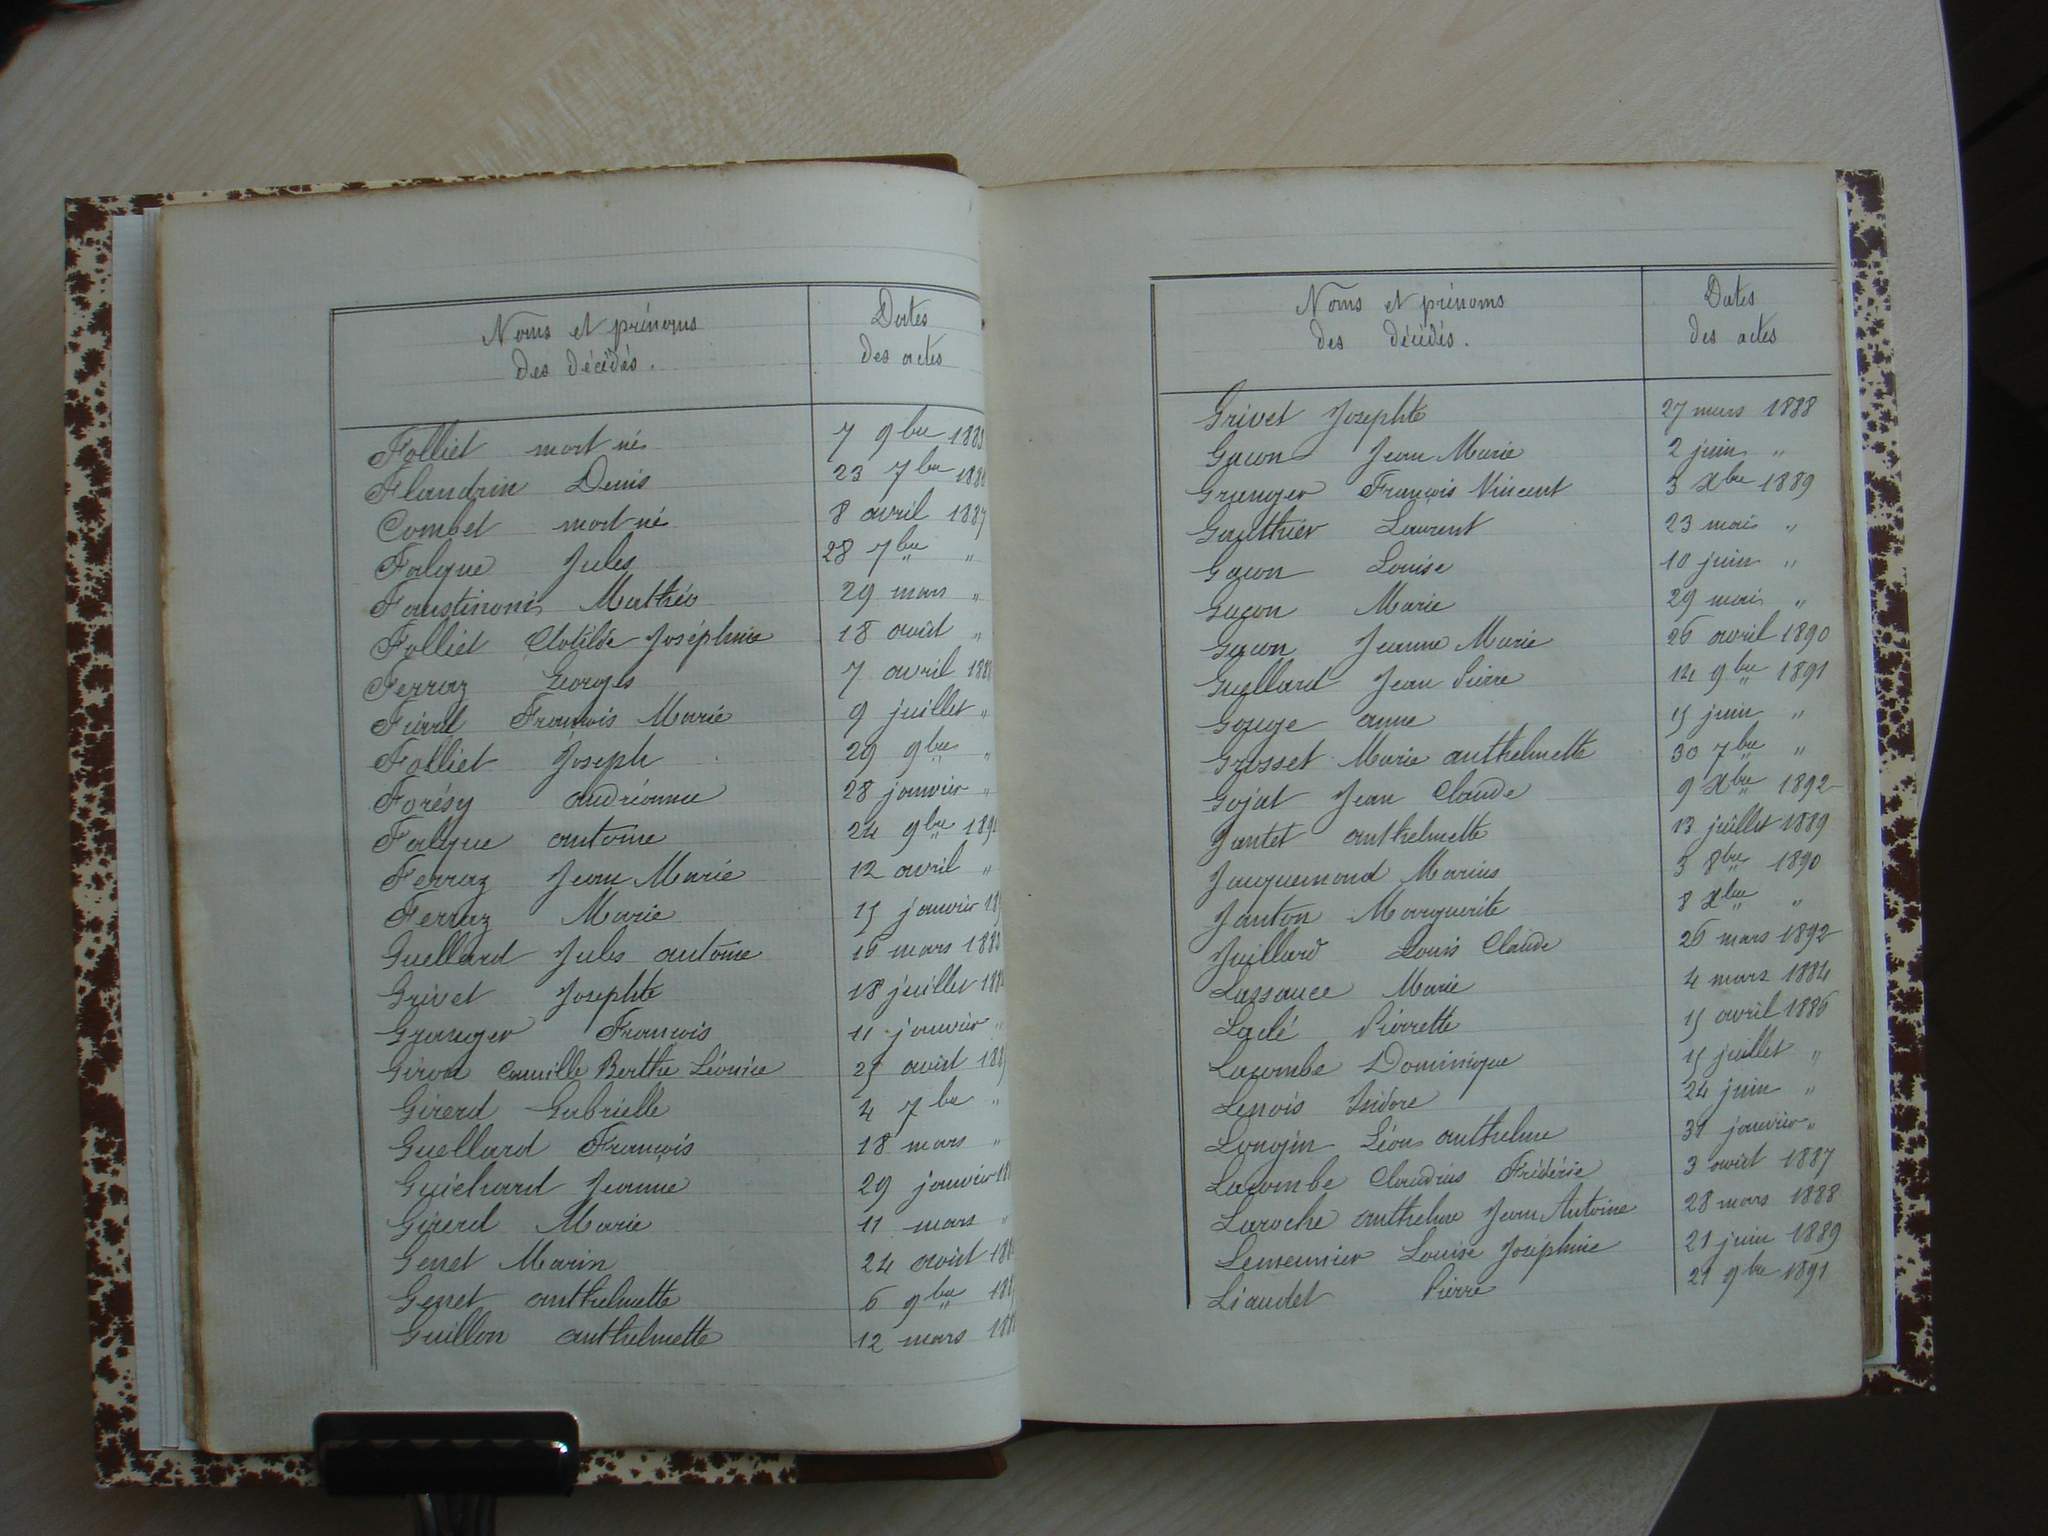 Noms et prénoms
des décédés.
Dates
des actes
Folliet mort né 7 9bre 188
Flandrin Denis 23 7bre 188
Combet mort né 8 avril 1887
Falque Jules 28 7bre "
Faustinoni Mathéo 29 mars "
Folliet Clotilde Joséphine 18 août "
Ferraz Georges 7 avril 188
Fierd François Marie 9 juillet "
Folliet Joseph 29 9bre "
Forésy andréanne 28 janvier "
Falque antoine 24 9bre 189
Ferraz Jean Marie 12 avril "
Ferraz Marie 15 janvier 18
Guellard Jules antoine 16 mars 188
Grivet Josephte 18 juillet 188
Granger François 11 janvier "
Girod Camille Berthe Léonice 25 août 188
Girerd Gabrielle 4 7bre "
Guellard François 18 mars "
Guichard Jeanne 29 janvier 18
Girerd Marie 11 mars "
Genet Marin 24 août 188
Genet anthelmette 6 9bre 188
Guillon anthelmette 12 mars 188
Noms et prénoms
des décédés.
Dates
des actes
Grivet Josephte 27 mars 1888
Gacon Jean Marie 2 juin "
Granger François Vincent 3 Xbre 1889
Gaulthier Laurent 23 mai "
Gacon Louise 10 juin "
Gacon Marie 29 mai "
Gacon Jeanne Marie 26 avril 1890
Guellard Jean Pierre 14 9bre 1891
Gouge anne 15 juin "
Grosset Marie anthelmette 30 7bre "
Gojat Jean Claude 9 Xbre 1892
Jantet anthelmette 13 juillet 1889
Jacquemond Marius 3 8bre 1890
Janton Marguerite 8 Xbre "
Juillard Louis Claude 26 mars 1892
Lassauce Marie 4 mars 1884
Ladé Pierrette 15 avril 1886
Lacombe Dominique 15 juillet "
Lenois Isidore 24 juin "
Longin Léon anthelme 31 janvier "
Lacombe Claudius Frédéric 3 août 1887
Laroche anthelme Jean Antoine 28 mars 1888
Lemeunier Louise Joséphine 21 juin 1889
Liaudet Pierre 21 9bre 1891